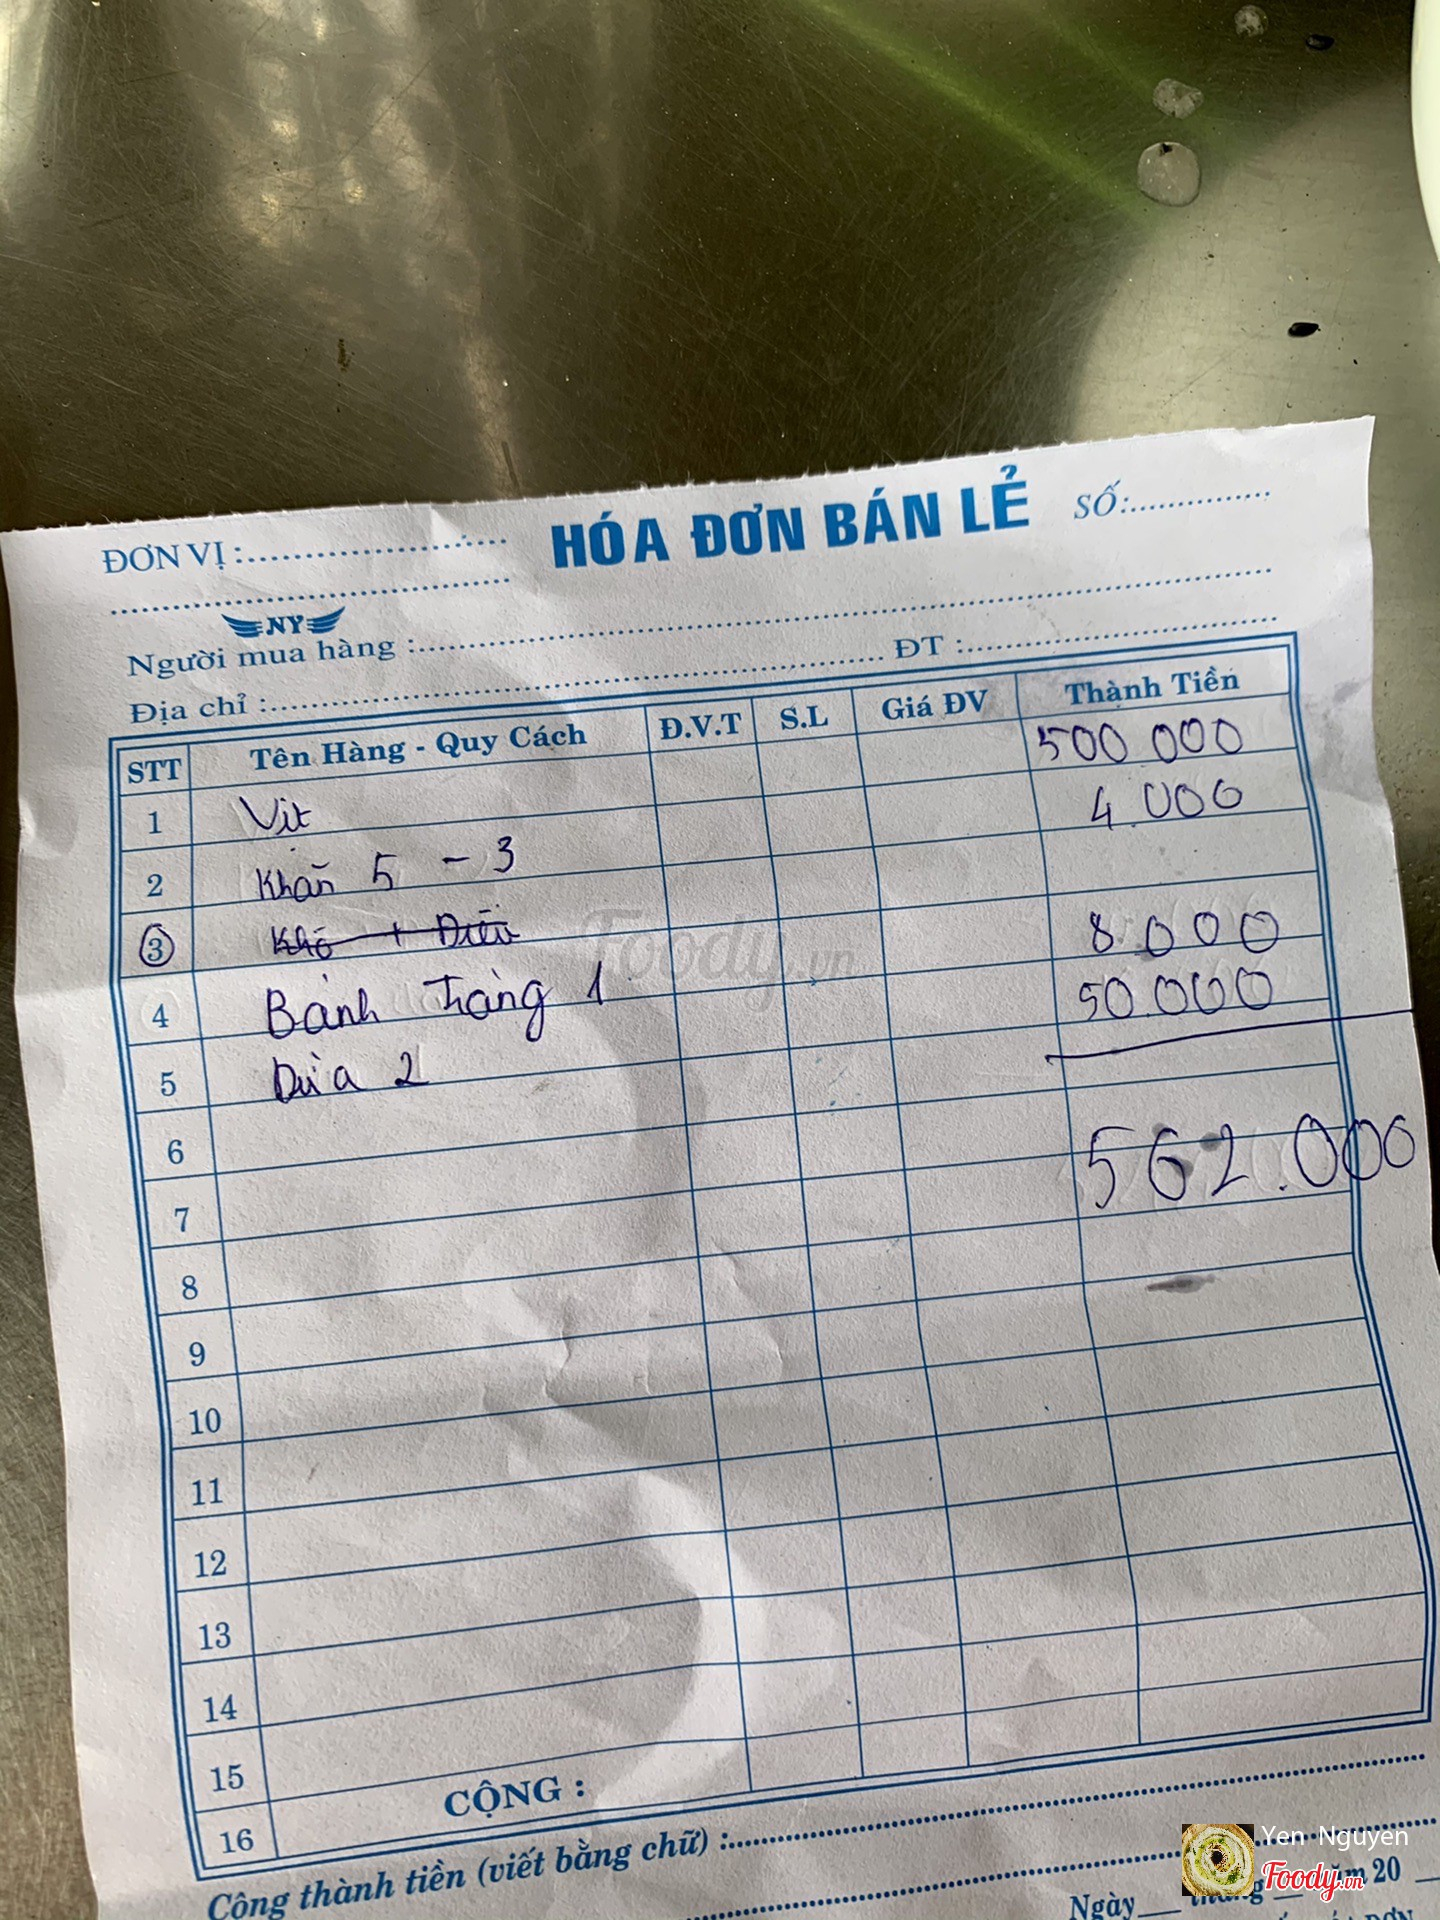 HÓA ĐƠN BÁN LẺ SỐ:
ĐƠN VỊ :
NY
Người mua hàng :
Địa chỉ : ĐT :
STT Tên Hàng - Quy Cách Đ.V.T S.L Giá ĐV Thành Tiền
1 Vịt 500 000
2 Khăn 5 - 3 4.000
3
4 Bánh tráng 1 8.000
5 Dừa 2 50.000
6
562.000
7
8
9
10
11
12
13
14
15
16 CỘNG :
Cộng thành tiền (viết bằng chữ) :
Ngày tháng năm 20
Foody.vn
Yen Nguyen
Foody.vn